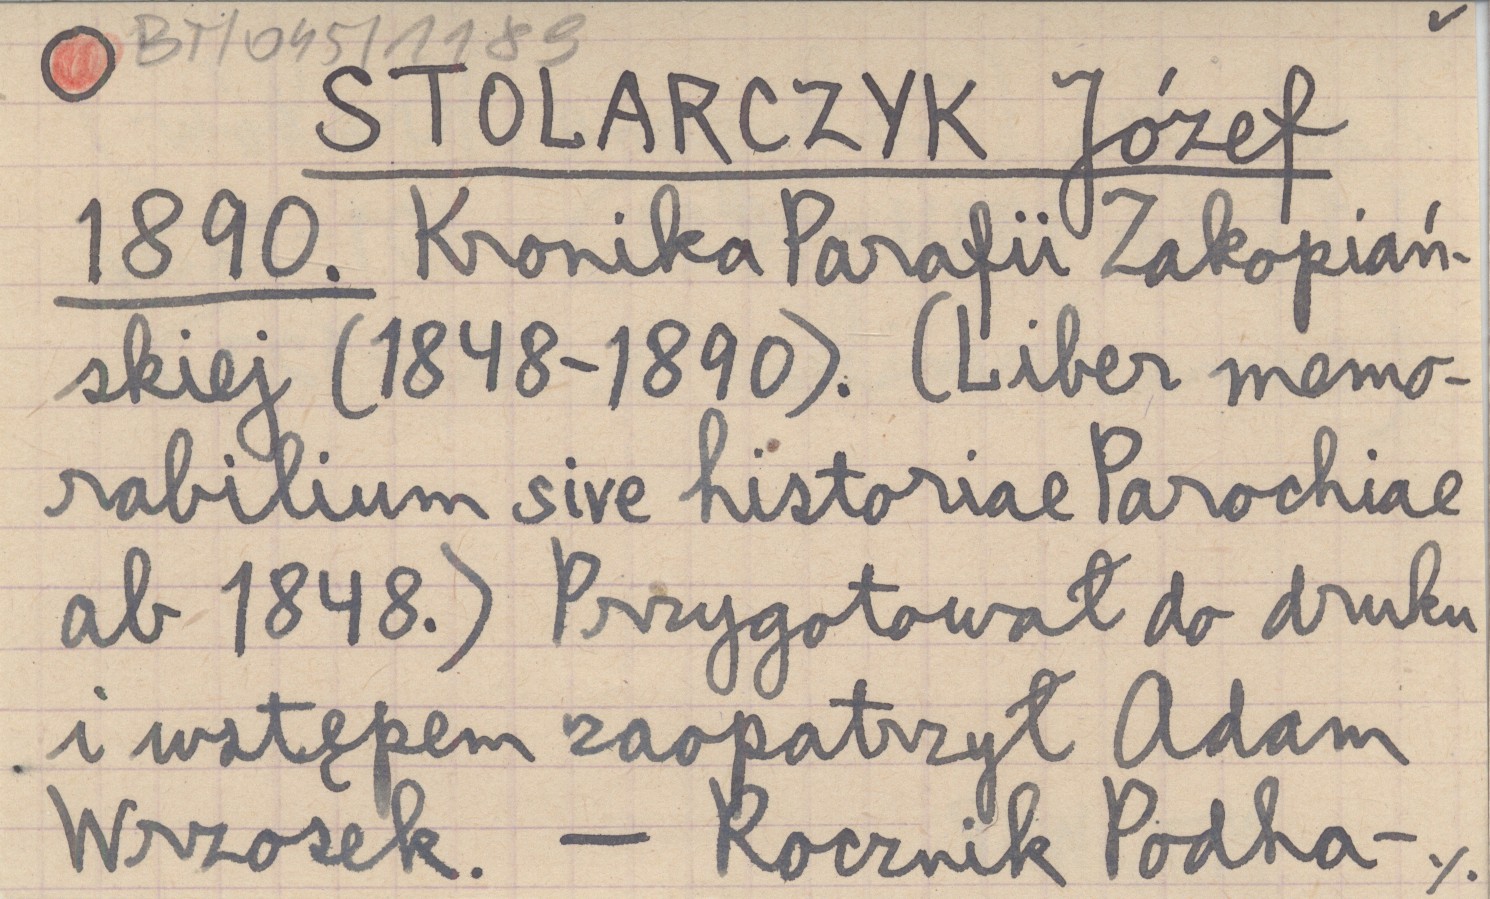 BT/045/1189
STOLARCZYK Józef
1890. Kronika Parafii Zakopiań-
skiej (1848-1890). (Liber memo-
rabilium sive historiae Parochiae
ab 1848.) Przygotował do druku
i wstępem zaopatrzył Adam
Wrzosek. — Rocznik Podha- ./.